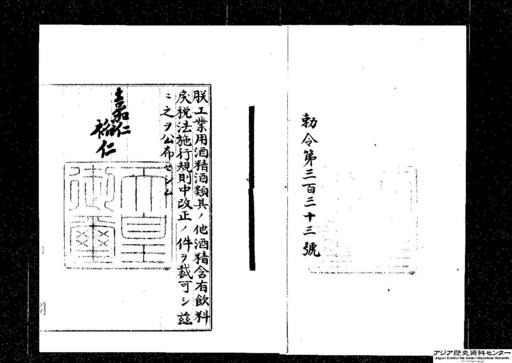 勅令第三百二十三號
朕工業用酒精酒類其ノ他酒精含有飲料
戻税法施行規則中改正ノ件ヲ裁可シ茲
ニ之ヲ公布セシム
嘉仁
裕仁
天皇
御璽
アジア歴史資料センター
Japan Center for Asian Historical Records